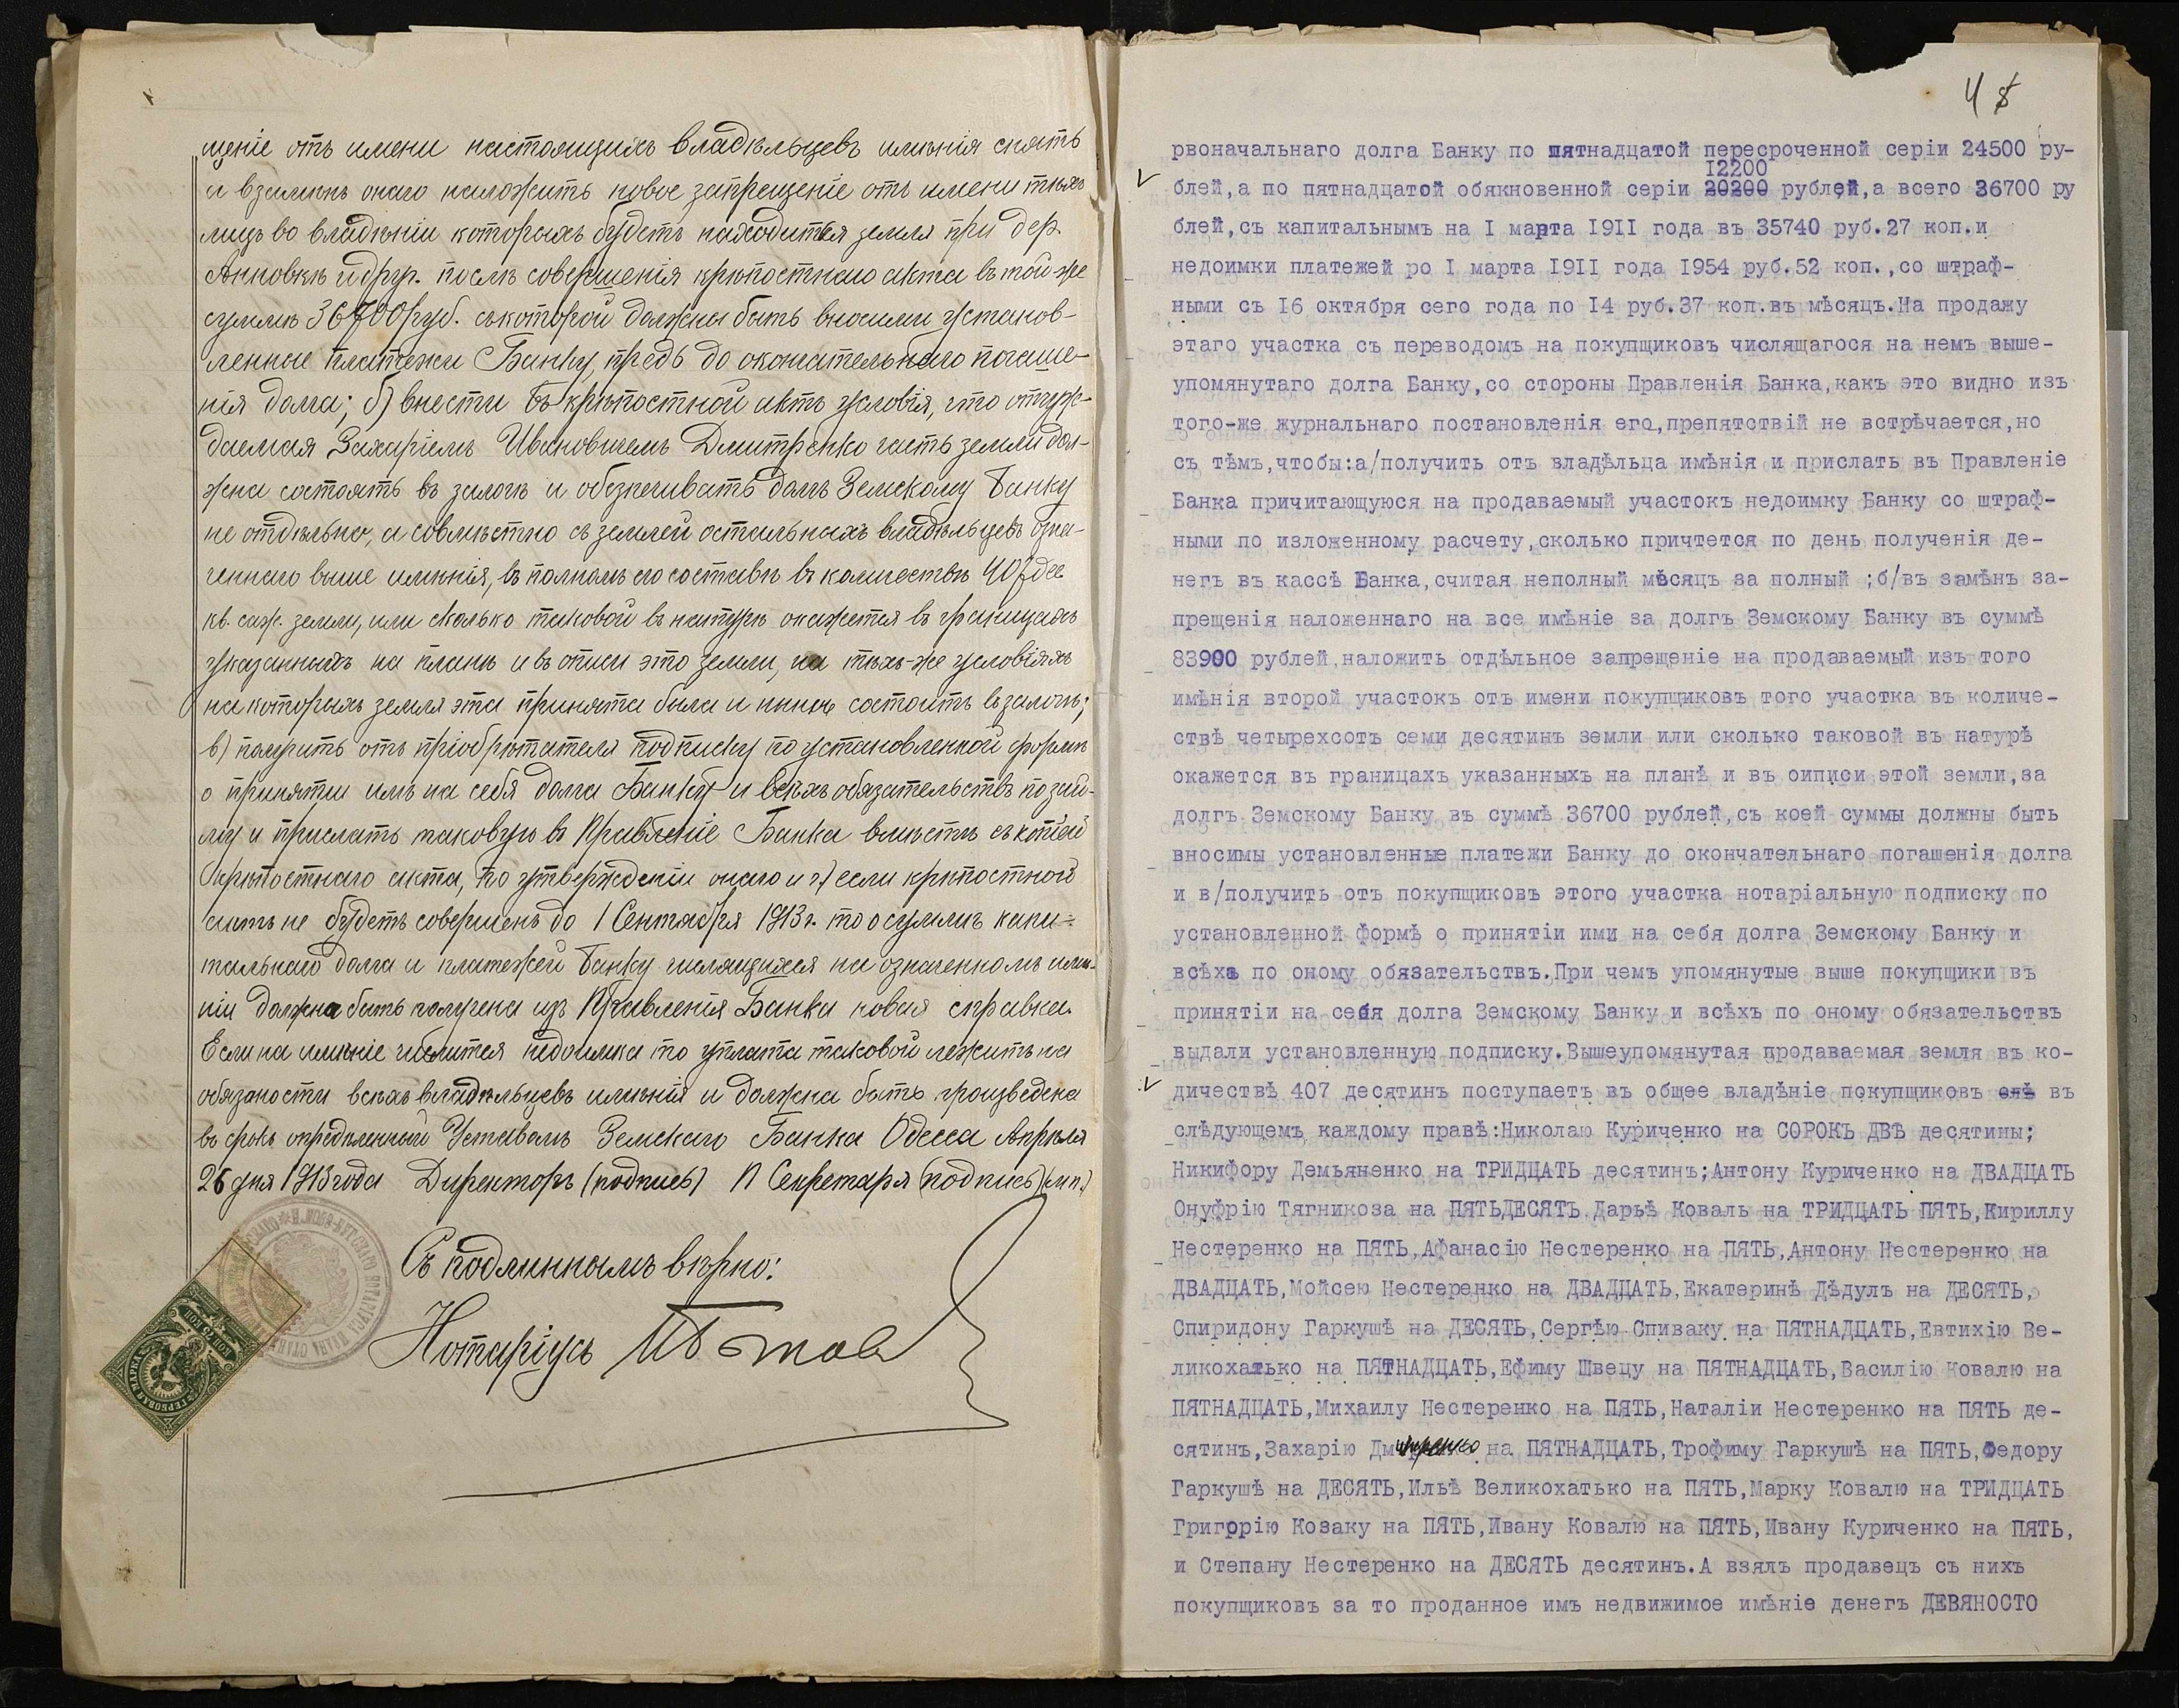 щеніе отъ имени настоящихъ владѣльцевъ имѣнія снять
и взамѣнъ онаго наложить новое запрещеніе отъ имени тѣхъ
лицъ во владѣніи которыхъ будетъ находиться земля при дер.
Анновкѣ и друг. послѣ совершенія крѣпостнаго акта въ той-же
суммѣ 36700 руб. съ которой должны быть вносимы установ-
ленные платежи Банку, предь до окончательнаго погаше-
нія долга; б) внести въ крѣпостной актъ условія, что отчуж-
даемая Захаріемъ Ивановичемъ Дмитренко часть земли дол-
жна состоять въ залогѣ и обезпечивать долгъ Земскому Банку
не отдѣльно, а совмѣстно съ землей остальныхъ владѣльцевъ озна-
ченнаго выше имѣнія, въ полномъ его составѣ въ количествѣ 407 дес
кв. саж. земли, или сколько таковой въ натурѣ окажется въ границахъ
указанныхъ на планѣ и въ описи это земли, на тѣхъ-же условіяхъ
на которыхъ земля эта принята была и нынѣ состоитъ въ залогѣ;
в) получить отъ пріобрѣтателя подписку по установленной формѣ
о принятіи имъ на себя долга Банку и всѣхъ обязательствъ по зай-
му и прислать таковую въ Правленіе Банка вмѣстѣ съ копіей
крѣпостнаго акта, по утвержденіи онаго и г) если крѣпостной
актъ не будетъ совершенъ до 1 Сентября 1913 г. то о суммѣ капи-
тальнаго долга и платежей Банку числящихся на означенномъ имѣ-
ніи должна быть получена изъ Правленія Банка новая справка.
Если на имѣніе числится недоимка то уплата таковой лежитъ на
обязаности всѣхъ владѣльцевъ имѣнія и должна быть произведена
въ срокъ опредѣленный Уставомъ Земскаго Банка Одесса Апрѣля
26 дня 1913 года Директоръ (подпись) П Секретаря (подпись) (мп.)
Съ подлиннымъ вѣрно:
Нотаріусъ
ГЕРБОВАЯ МАРКА
75 КОП
4 5
рвоначальнаго долга Банку по пятнадцатой пересроченной серіи 24500 ру-
I2200
блей,а по пятнадцатой обякновенной серіи 20200 рублей,а всего 36700 ру
блей,съ капитальнымъ на I марта I9II года въ 35740 руб.27 коп.и
недоимки платежей ро I марта I9II года I954 руб.52 коп.,со штраф-
ными съ I6 октября сего года по I4 руб.37 коп.въ мѣсяцъ.На продажу
этаго участка съ переводомъ на покупщиковъ числящагося на немъ выше-
упомянутаго долга Банку,со стороны Правленія Банка,какъ это видно изъ
того-же журнальнаго постановленія его,препятствій не встрѣчается,но
съ тѣмъ,чтобы:а/получить отъ владѣльца имѣнія и прислать въ Правленіе
Банка причитающуюся на продаваемый участокъ недоимку Банку со штраф-
ными по изложенному расчету,сколько причтется по день полученія де-
негъ въ кассѣ Банка,считая неполный мѣсяцъ за полный ;б/въ замѣнъ за-
прещенія наложеннаго на все имѣніе за долгъ Земскому Банку въ суммѣ
83900 рублей,наложить отдѣльное запрещеніе на продаваемый изъ того
имѣнія второй участокъ отъ имени покупщиковъ того участка въ количе-
ствѣ четырехсотъ семи десятинъ земли или сколько таковой въ натурѣ
окажется въ границахъ указанныхъ на планѣ и въ оиписи этой земли,за
долгъ Земскому Банку въ суммѣ 36700 рублей,съ коей суммы должны быть
вносимы установленные платежи Банку до окончательнаго погашенія долга
и в/получить отъ покупщиковъ этого участка нотаріальную подписку по
установленной формѣ о принятіи ими на себя долга Земскому Банку и
всѣхъ по оному обязательствъ.При чемъ упомянутые выше покупщики въ
принятіи на себя долга Земскому Банку и всѣхъ по оному обязательствъ
выдали установленную подписку.Вышеупомянутая продаваемая земля въ ко-
дичествѣ 407 десятинъ поступаетъ въ общее владѣніе покупщиковъ въ
слѣдующемъ каждому правѣ:Николаю Куриченко на СОРОКЪ ДВѢ десятины;
Никифору Демьяненко на ТРИДЦАТЬ десятинъ;Антону Куриченко на ДВАДЦАТЬ
Онуфрію Тягникоза на ПЯТЬДЕСЯТЪ Дарьѣ Коваль на ТРИДЦАТЬ ПЯТЬ,Кириллу
Нестеренко на ПЯТЬ,Афанасію Нестеренко на ПЯТЬ,Антону Нестеренко на
ДВАДЦАТЬ,Мойсею Нестеренко на ДВАДЦАТЬ,Екатеринѣ Дѣдулъ на ДЕСЯТЬ,
Спиридону Гаркушѣ на ДЕСЯТЬ,Сергѣю Спиваку на ПЯТНАДЦАТЬ,Евтихію Ве-
ликохатько на ПЯТНАДЦАТЬ,Ефиму Швецу на ПЯТНАДЦАТЬ,Василію Ковалю на
ПЯТНАДЦАТЬ,Михаилу Нестеренко на ПЯТЬ,Наталіи Нестеренко на ПЯТЬ де-
сятинъ,Захарію Дмитренко на ПЯТНАДЦАТЬ,Трофиму Гаркушѣ на ПЯТЬ,Федору
Гаркушѣ на ДЕСЯТЬ,Ильѣ Великохатько на ПЯТЬ,Марку Ковалю на ТРИДЦАТЬ
Григорію Козаку на ПЯТЬ,Ивану Ковалю на ПЯТЬ,Ивану Куриченко на ПЯТЬ,
и Степану Нестеренко на ДЕСЯТЬ десятинъ.А взялъ продавецъ съ нихъ
покупщиковъ за то проданное имъ недвижимое имѣніе денегъ ДЕВЯНОСТО